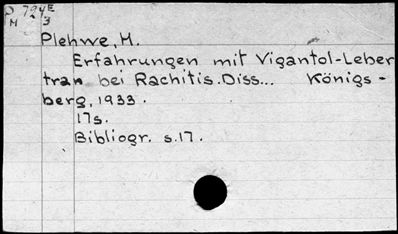 Plehwe, H.
Erfahrungen mit Vigantol-Leber
tran bei Rachitis. Diss... Königs-
berg, 1933.
17s.
Bibliogr. s.17.